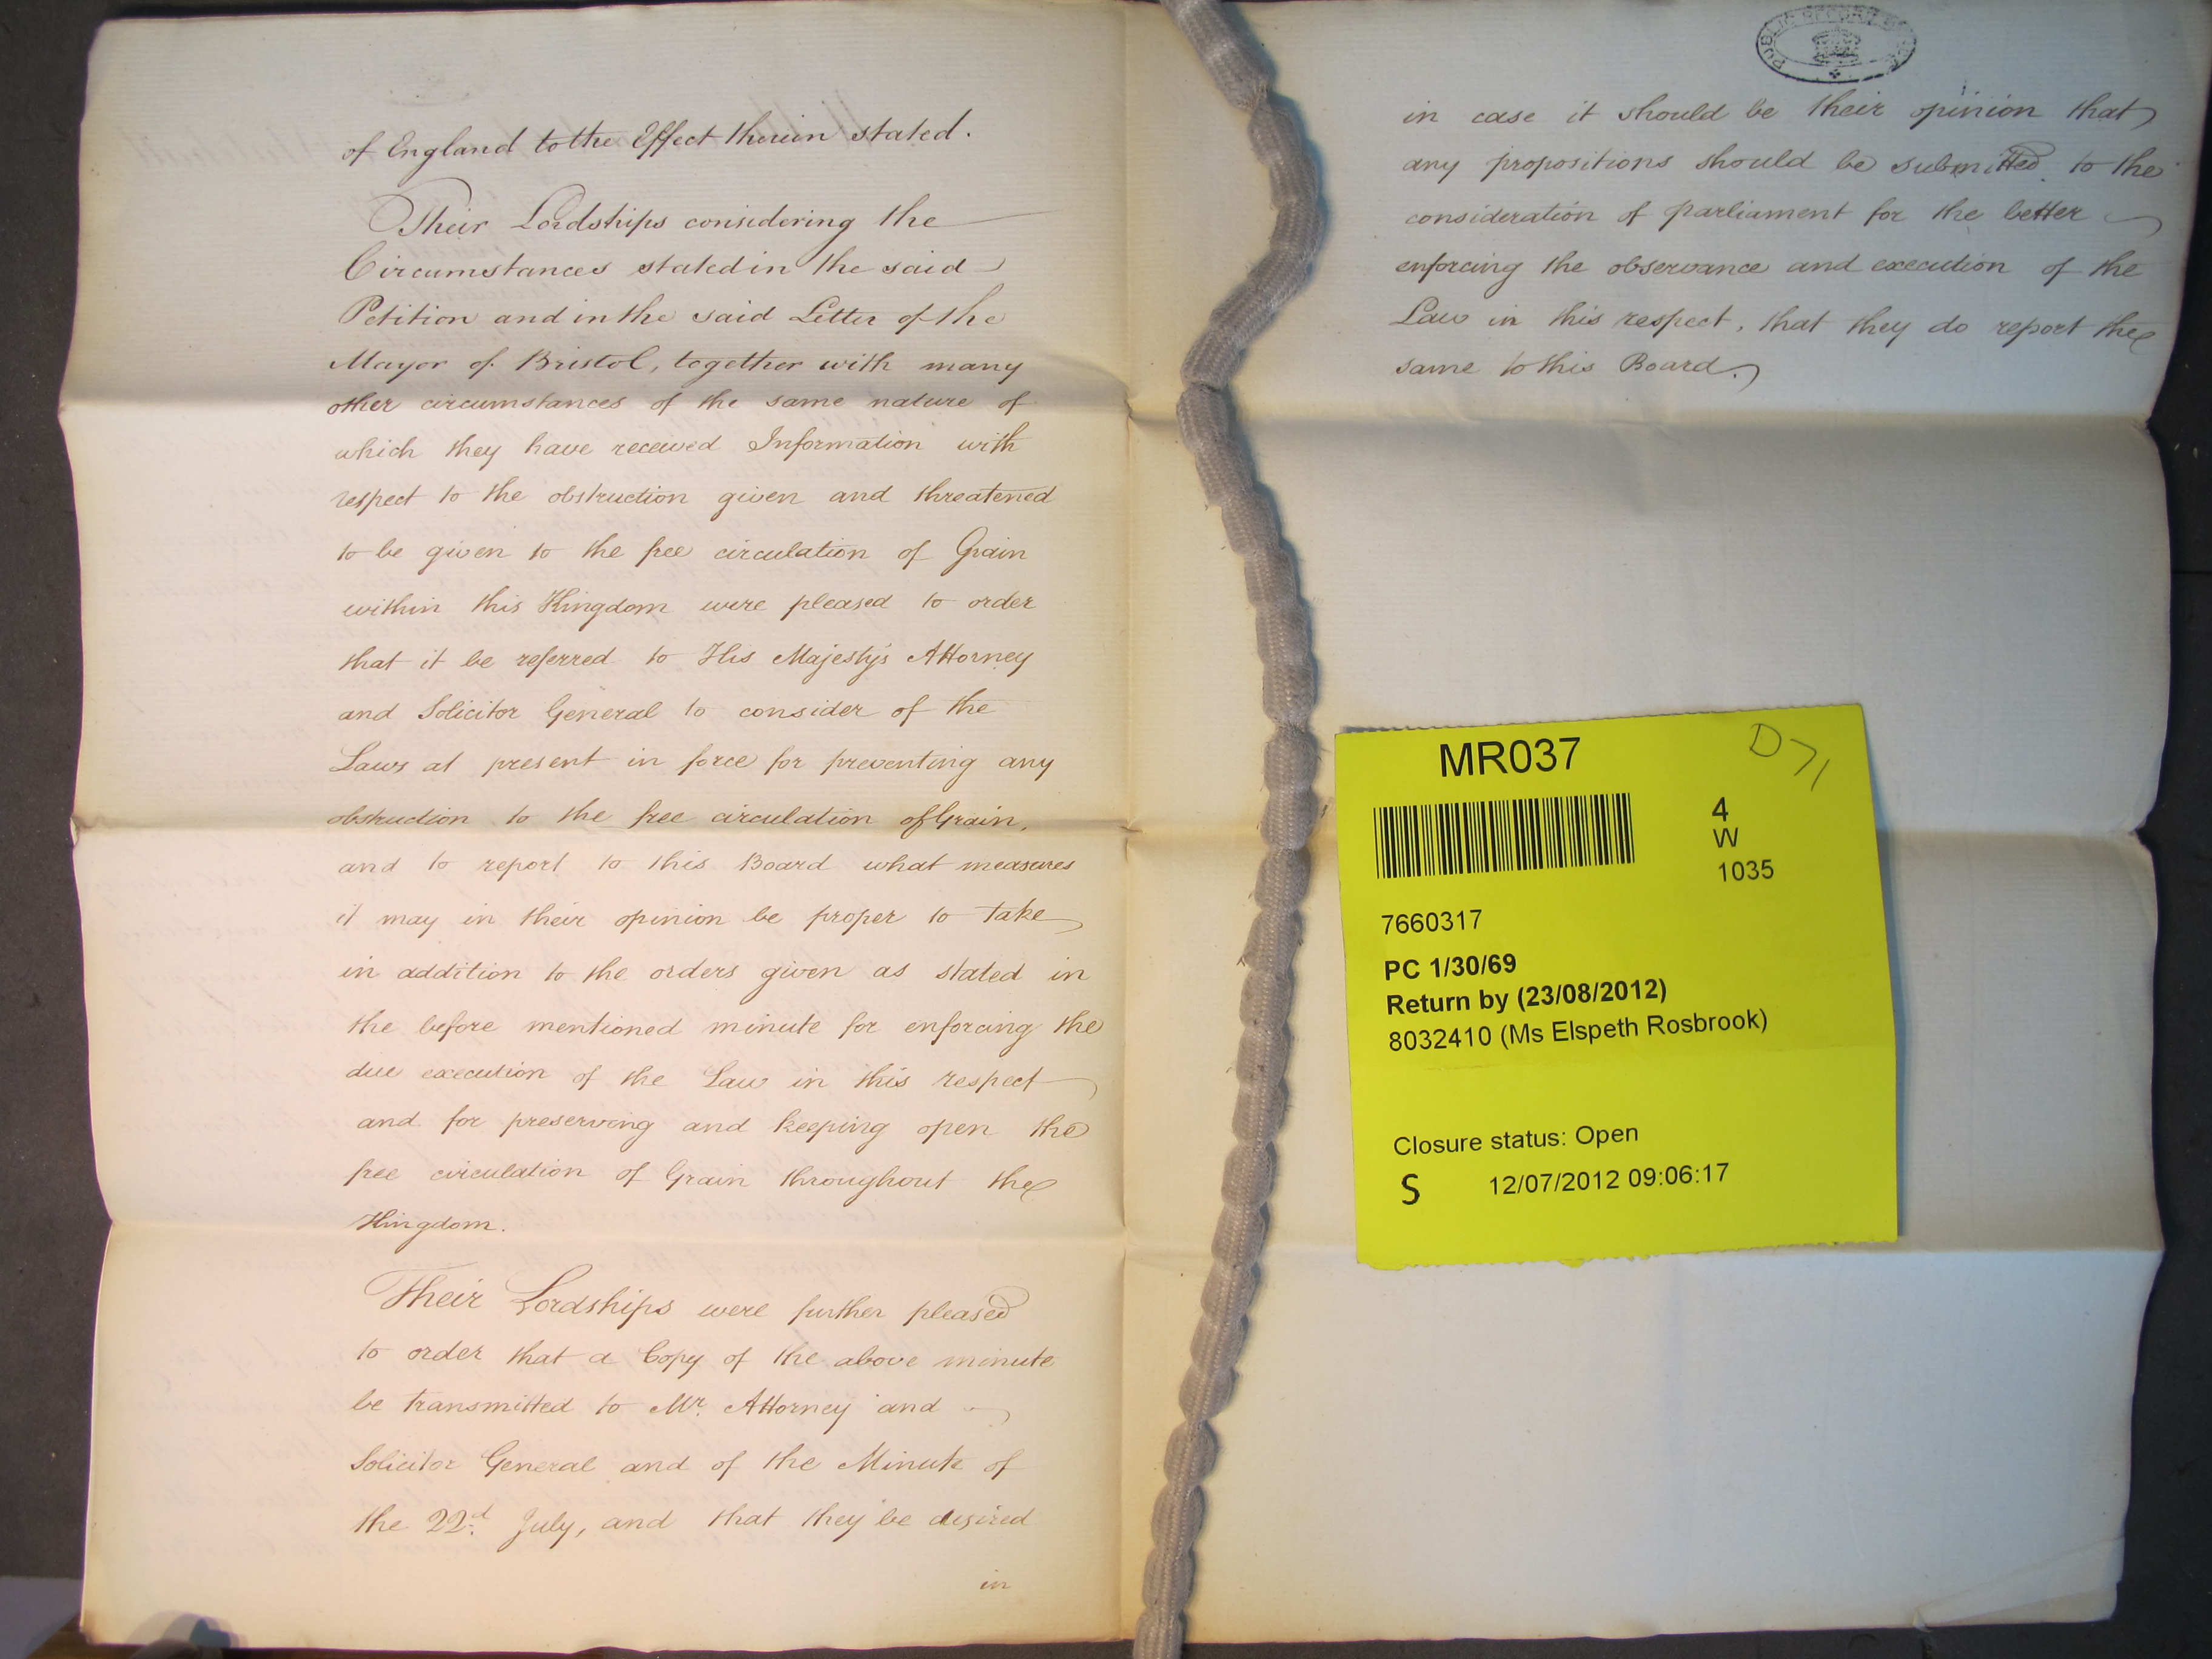 of England to the Effect therein stated.
Their Lordships considering the
Circumstances stated in the said
Petition and in the said Letter of the
Mayor of Bristol, together with many
other circumstances of the same nature of
which they have received Information with
respect to the obstruction given and threatened
to be given to the free circulation of Grain
within this Kingdom were pleased to order
that it be referred to His Majesty's Attorney
and Solicitor General to consider of the
Laws at present in force for preventing any
obstruction to the free circulation of Grain,
and to report to this Board what measures
it may in their opinion be proper to take
in addition to the orders given as stated in
the before mentioned minute for enforcing the
due execution of the Law in this respect
and for preserving and keeping open the
free circulation of Grain throughout the
Kingdom.
Their Lordships were further pleased
to order that a Copy of the above minute
be transmitted to Mr. Attorney and
Solicitor General and of the Minute of
the 22d. July, and that they be desired
in
PUBLIC RECORD OFFICE
in case it should be their opinion that
any propositions should be submitted to the
consideration of parliament for the better
enforcing the observance and execution of the
Law in this respect, that they do report the
same to this Board.
MR037
D71
4
W
1035
7660317
PC 1/30/69
Return by (23/08/2012)
8032410 (Ms Elspeth Rosbrook)
Closure status: Open
S 12/07/2012 09:06:17